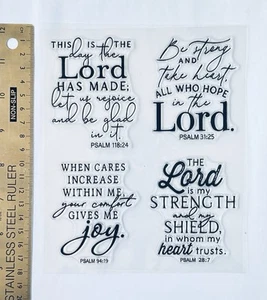 THIS IS THE
day the
Lord
HAS MADE;
let us rejoice
and be glad
in it.
PSALM 118:24
Be strong
AND
take heart,
ALL WHO HOPE
in the
Lord.
PSALM 31:25
WHEN CARES
INCREASE
WITHIN ME,
your comfort
GIVES ME
joy.
PSALM 94:19
THE
Lord
is my
STRENGTH
and my
SHIELD,
in whom my
heart trusts.
PSALM 28:7
NON-SLIP
STAINLESS STEEL RULER